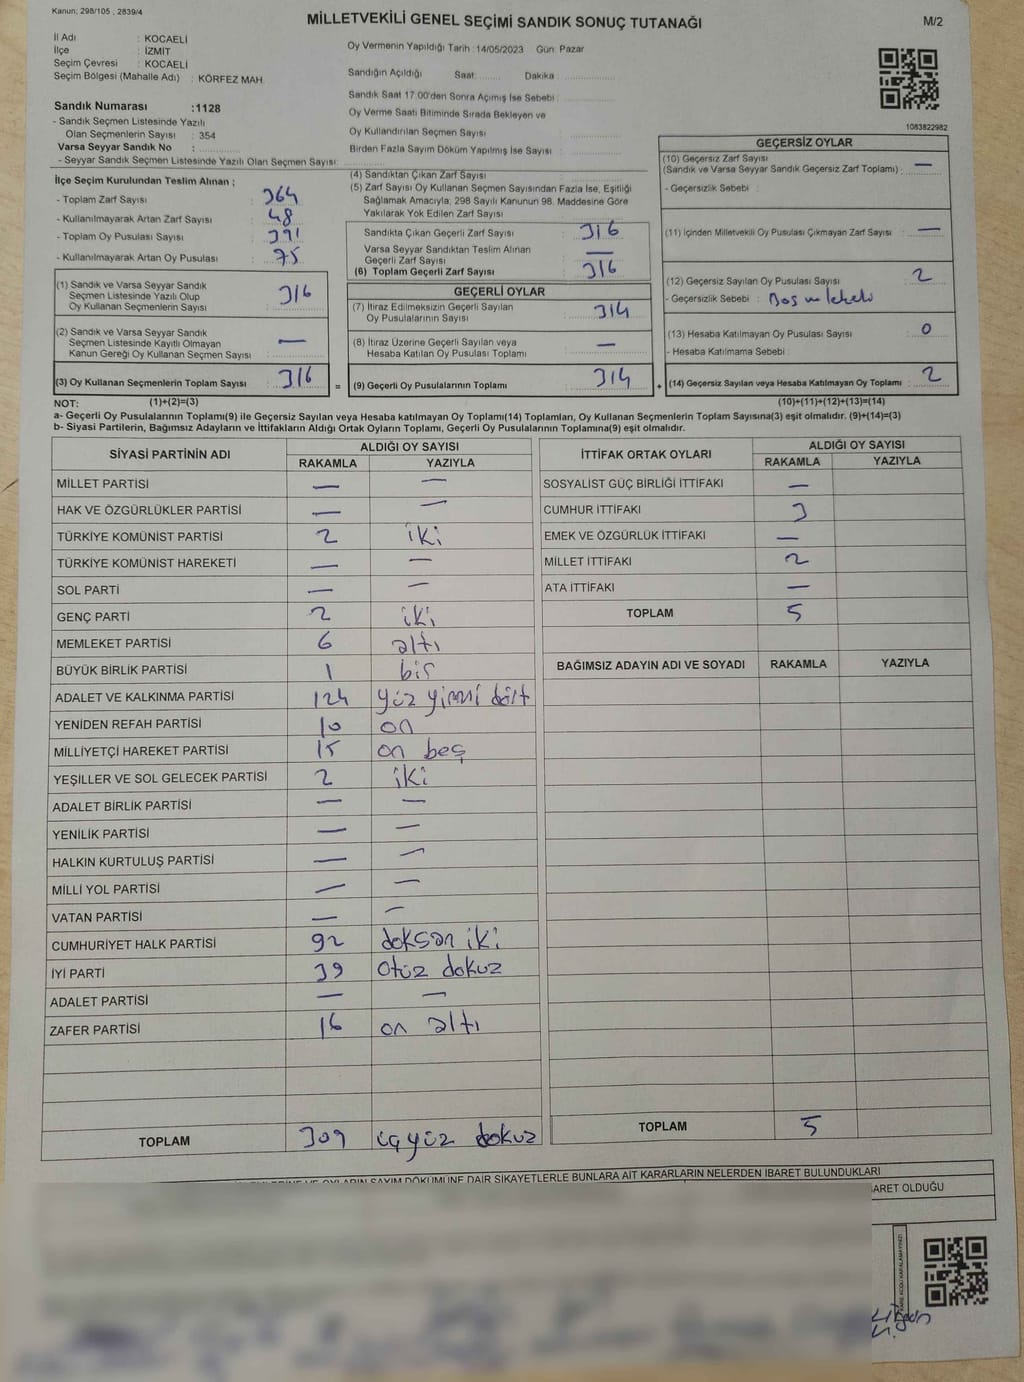 Kanun: 298/105 , 2839/4
MİLLETVEKİLİ GENEL SEÇİMİ SANDIK SONUÇ TUTANAĞI
M/2
İl Adı : KOCAELİ
İlçe : İZMİT
Seçim Çevresi : KOCAELİ
Seçim Bölgesi (Mahalle Adı) : KÖRFEZ MAH.
Sandık Numarası :1128
- Sandık Seçmen Listesinde Yazılı
Olan Seçmenlerin Sayısı : 354
Varsa Seyyar Sandık No :
- Seyyar Sandık Seçmen Listesinde Yazılı Olan Seçmen Sayısı:
Oy Vermenin Yapıldığı Tarih : 14/05/2023 Gün: Pazar
Sandığın Açıldığı Saat: Dakika :
Sandık Saat 17:00'den Sonra Açılmış İse Sebebi :
Oy Verme Saati Bitiminde Sırada Bekleyen ve
Oy Kullandırılan Seçmen Sayısı :
Birden Fazla Sayım Döküm Yapılmış İse Sayısı :
1083822982
İlçe Seçim Kurulundan Teslim Alınan ;
- Toplam Zarf Sayısı : 364
- Kullanılmayarak Artan Zarf Sayısı : 48
- Toplam Oy Pusulası Sayısı : 391
- Kullanılmayarak Artan Oy Pusulası : 75
(1) Sandık ve Varsa Seyyar Sandık
Seçmen Listesinde Yazılı Olup
Oy Kullanan Seçmenlerin Sayısı : 316
(2) Sandık ve Varsa Seyyar Sandık
Seçmen Listesinde Kayıtlı Olmayan
Kanun Gereği Oy Kullanan Seçmen Sayısı : —
(3) Oy Kullanan Seçmenlerin Toplam Sayısı : 316
(4) Sandıktan Çıkan Zarf Sayısı :
(5) Zarf Sayısı Oy Kullanan Seçmen Sayısından Fazla İse, Eşitliği
Sağlamak Amacıyla, 298 Sayılı Kanunun 98. Maddesine Göre
Yakılarak Yok Edilen Zarf Sayısı :
Sandıkta Çıkan Geçerli Zarf Sayısı : 316
Varsa Seyyar Sandıktan Teslim Alınan
Geçerli Zarf Sayısı : —
(6) Toplam Geçerli Zarf Sayısı : 316
GEÇERLİ OYLAR
(7) İtiraz Edilmeksizin Geçerli Sayılan
Oy Pusulalarının Sayısı : 314
(8) İtiraz Üzerine Geçerli Sayılan veya
Hesaba Katılan Oy Pusulası Toplamı : —
= (9) Geçerli Oy Pusulalarının Toplamı : 314
GEÇERSİZ OYLAR
(10) Geçersiz Zarf Sayısı
(Sandık ve Varsa Seyyar Sandık Geçersiz Zarf Toplamı) : —
- Geçersizlik Sebebi :
(11) İçinden Milletvekili Oy Pusulası Çıkmayan Zarf Sayısı : —
(12) Geçersiz Sayılan Oy Pusulası Sayısı : 2
- Geçersizlik Sebebi : Boş
(13) Hesaba Katılmayan Oy Pusulası Sayısı : 0
- Hesaba Katılmama Sebebi :
+ (14) Geçersiz Sayılan veya Hesaba Katılmayan Oy Toplamı : 2
NOT: (1)+(2)=(3) (10)+(11)+(12)+(13)=(14)
a- Geçerli Oy Pusulalarının Toplamı(9) ile Geçersiz Sayılan veya Hesaba katılmayan Oy Toplamı(14) Toplamları, Oy Kullanan Seçmenlerin Toplam Sayısına(3) eşit olmalıdır. (9)+(14)=(3)
b- Siyasi Partilerin, Bağımsız Adayların ve İttifakların Aldığı Ortak Oyların Toplamı, Geçerli Oy Pusulalarının Toplamına(9) eşit olmalıdır.
SİYASİ PARTİNİN ADI ALDIĞI OY SAYISI
RAKAMLA YAZIYLA
MİLLET PARTİSİ — —
HAK VE ÖZGÜRLÜKLER PARTİSİ — —
TÜRKİYE KOMÜNİST PARTİSİ 2 iki
TÜRKİYE KOMÜNİST HAREKETİ — —
SOL PARTİ — —
GENÇ PARTİ 2 iki
MEMLEKET PARTİSİ 6 altı
BÜYÜK BİRLİK PARTİSİ 1 bir
ADALET VE KALKINMA PARTİSİ 124 yüz yirmi dört
YENİDEN REFAH PARTİSİ 10 on
MİLLİYETÇİ HAREKET PARTİSİ 15 on beş
YEŞİLLER VE SOL GELECEK PARTİSİ 2 iki
ADALET BİRLİK PARTİSİ — —
YENİLİK PARTİSİ — —
HALKIN KURTULUŞ PARTİSİ — —
MİLLİ YOL PARTİSİ — —
VATAN PARTİSİ — —
CUMHURİYET HALK PARTİSİ 92 doksan iki
İYİ PARTİ 39 otuz dokuz
ADALET PARTİSİ — —
ZAFER PARTİSİ 16 on altı
TOPLAM 309 üçyüz dokuz
İTTİFAK ORTAK OYLARI ALDIĞI OY SAYISI
RAKAMLA YAZIYLA
SOSYALİST GÜÇ BİRLİĞİ İTTİFAKI —
CUMHUR İTTİFAKI 3
EMEK VE ÖZGÜRLÜK İTTİFAKI —
MİLLET İTTİFAKI 2
ATA İTTİFAKI —
TOPLAM 5
BAĞIMSIZ ADAYIN ADI VE SOYADI RAKAMLA YAZIYLA
TOPLAM 5
OYLARIN SAYIM DÖKÜMÜNE DAİR ŞİKAYETLERLE BUNLARA AİT KARARLARIN NELERDEN İBARET BULUNDUKLARI
OLDUĞU